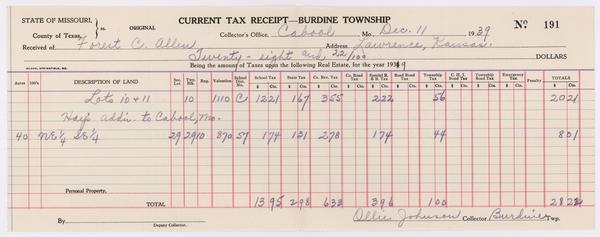 STATE OF MISSOURI, ss. ORIGINAL CURRENT TAX RECEIPT—BURDINE TOWNSHIP No 191
County of Texas, Collector's Office, Cabool Mo. Dec. 11 1939
Received of Forest C. Allen Address Lawrence, Kansas.
Twenty-eight and 22/100 DOLLARS
Being the amount of Taxes upon the following Real Estate, for the year 1939
Acres 100's DESCRIPTION OF LAND Sec. Lot Twp. Blk. Rng. Valuation School Dist. No. School Tax State Tax Co. Rev. Tax Co. Road Tax Special R. & B. Tax Co. Bond Tax Township Tax C. H. S. Bond Tax Township Road Tax Emergency Tax Penalty TOTALS
$ Cts. $ Cts. $ Cts. $ Cts. $ Cts. $ Cts. $ Cts. $ Cts. $ Cts. $ Cts. $ Cts.
Lots 10 + 11 10 1110 C1 1221 167 355 222 56 2021
Hay's add'n. to Cabool, Mo.
40 NE¼ SE¼ 29 29 10 870 57 174 131 278 174 44 801
Personal Property,
TOTAL 1395 298 633 396 100 2822
By Deputy Collector. Ollie Johnson Collector Burdine Twp.